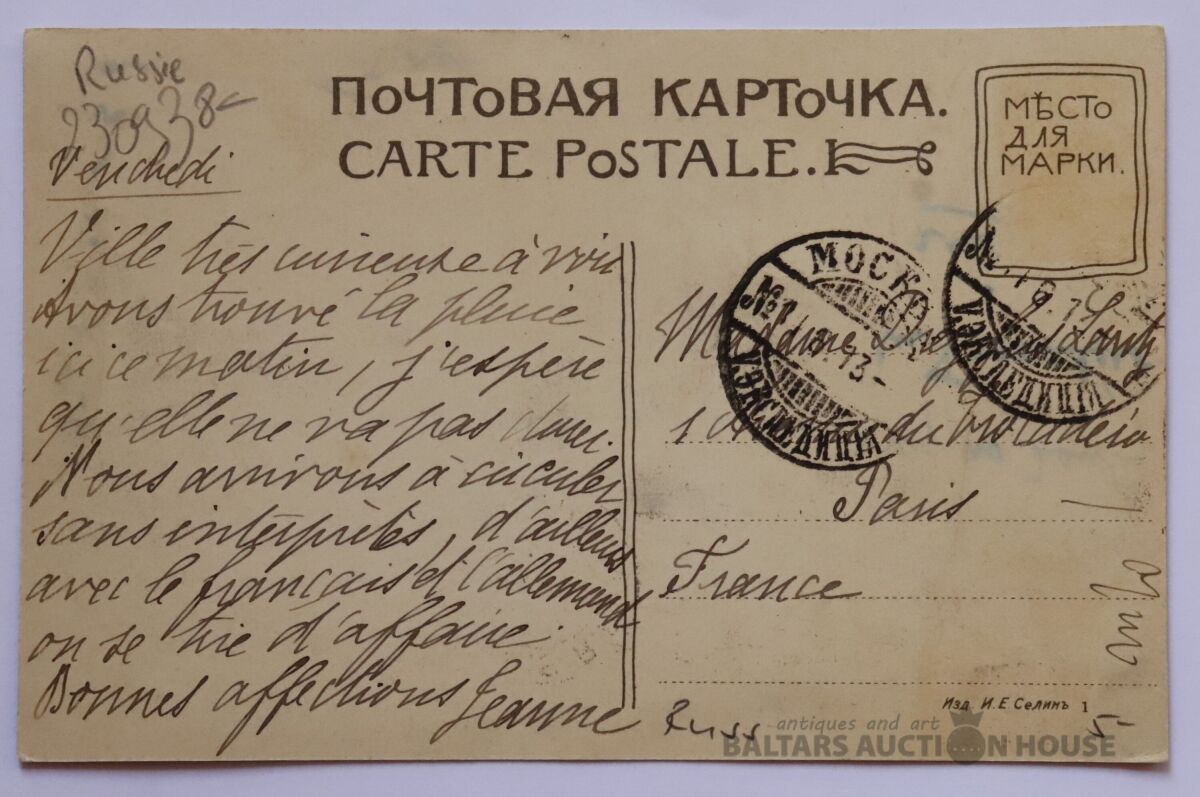 Russie
230938
Vendredi
ПОЧТОВАЯ КАРТОЧКА.
CARTE POSTALE.
МѢСТО
ДЛЯ
МАРКИ.
Ville très curieuse à voir
Avons trouvé la pluie
ici ce matin, j'espère
qu'elle ne va pas durer.
Nous arrivons à circuler
sans interprètes, d'ailleurs
avec le français et l'allemand
on se tire d'affaire.
Bonnes affections Jeanne
МОСКВА
№1
13
ЭКСПЕДИЦІЯ
ЭКСПЕДИЦІЯ
Madame
du Trocadéro
Paris
France
Изд. И.Е.Селинъ 1
Russ
antiques and art
BALTARS AUCTION HOUSE